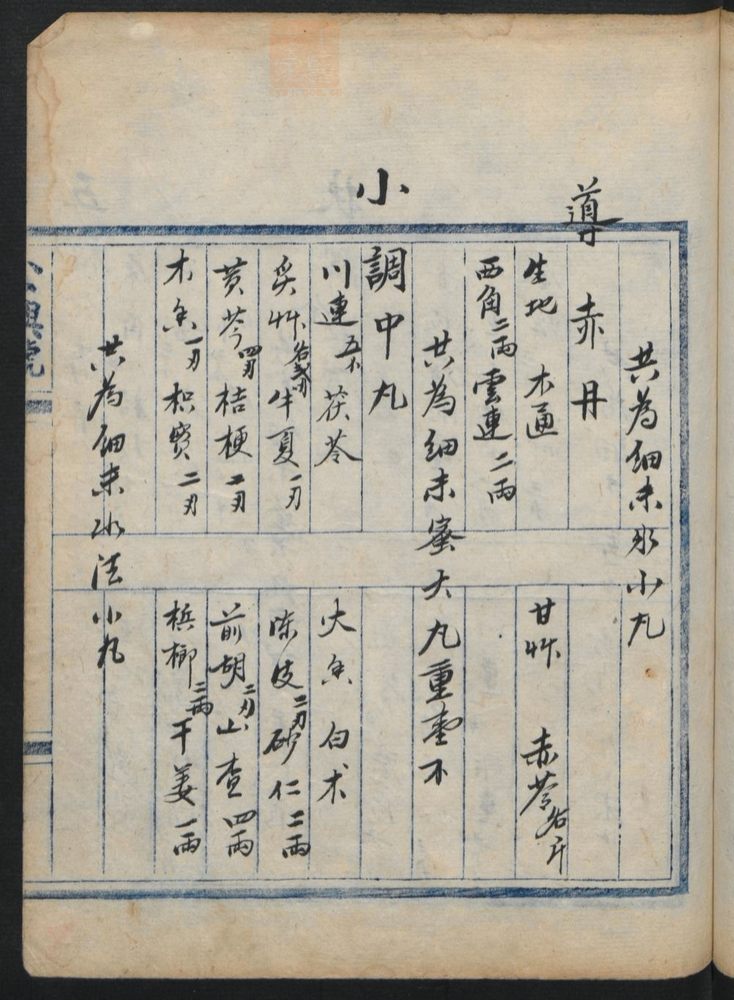 共為細末水小丸
導赤丹
生地 木通 甘艸 赤苓各斤
西角二兩 雲連二兩
共為細末蜜大丸重壹不
小
調中丸
川連五不 茯苓 大香 白术
炙艸各弍刃 半夏一刃 陳皮二刃 砂仁二兩
黄芩四刃 桔梗二刃 前胡二刃 山查四兩
木香一刃 枳實二刃 梹榔三兩 干姜一兩
共為細末水法小丸